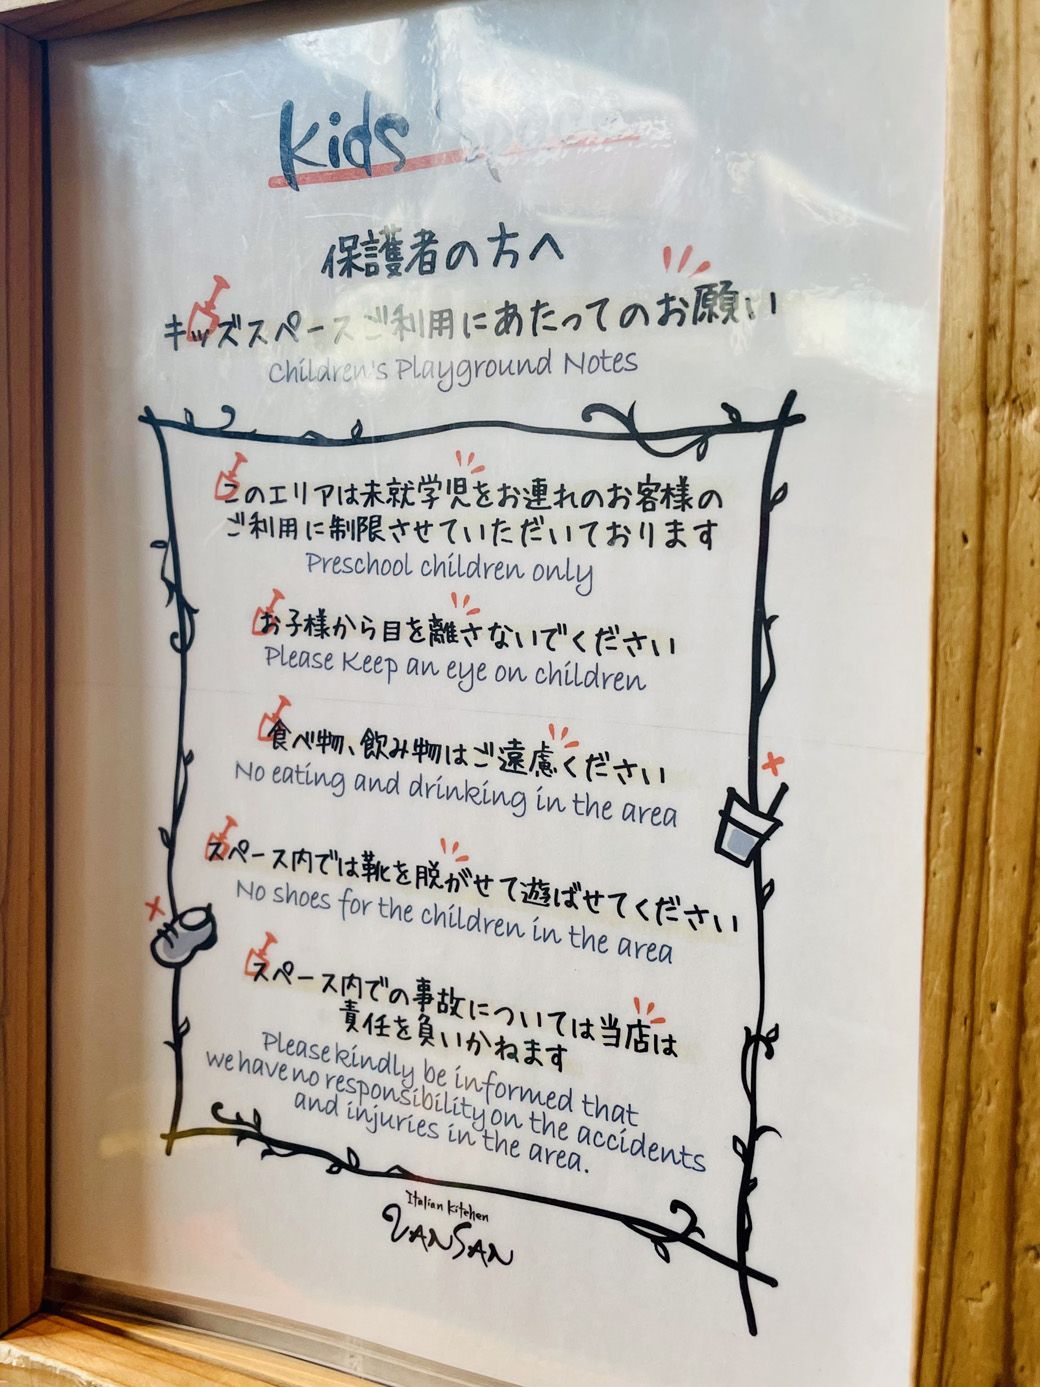 Kids Space
保護者の方へ
キッズスペースご利用にあたってのお願い
Children's Playground Notes
このエリアは未就学児をお連れのお客様の
ご利用に制限させていただいております
Preschool children only
お子様から目を離さないでください
Please Keep an eye on children
食べ物、飲み物はご遠慮ください
No eating and drinking in the area
スペース内では靴を脱がせて遊ばせてください
No shoes for the children in the area
スペース内での事故については当店は
責任を負いかねます
Please kindly be informed that
we have no responsibility on the accidents
and injuries in the area.
Italian Kitchen
VANSAN